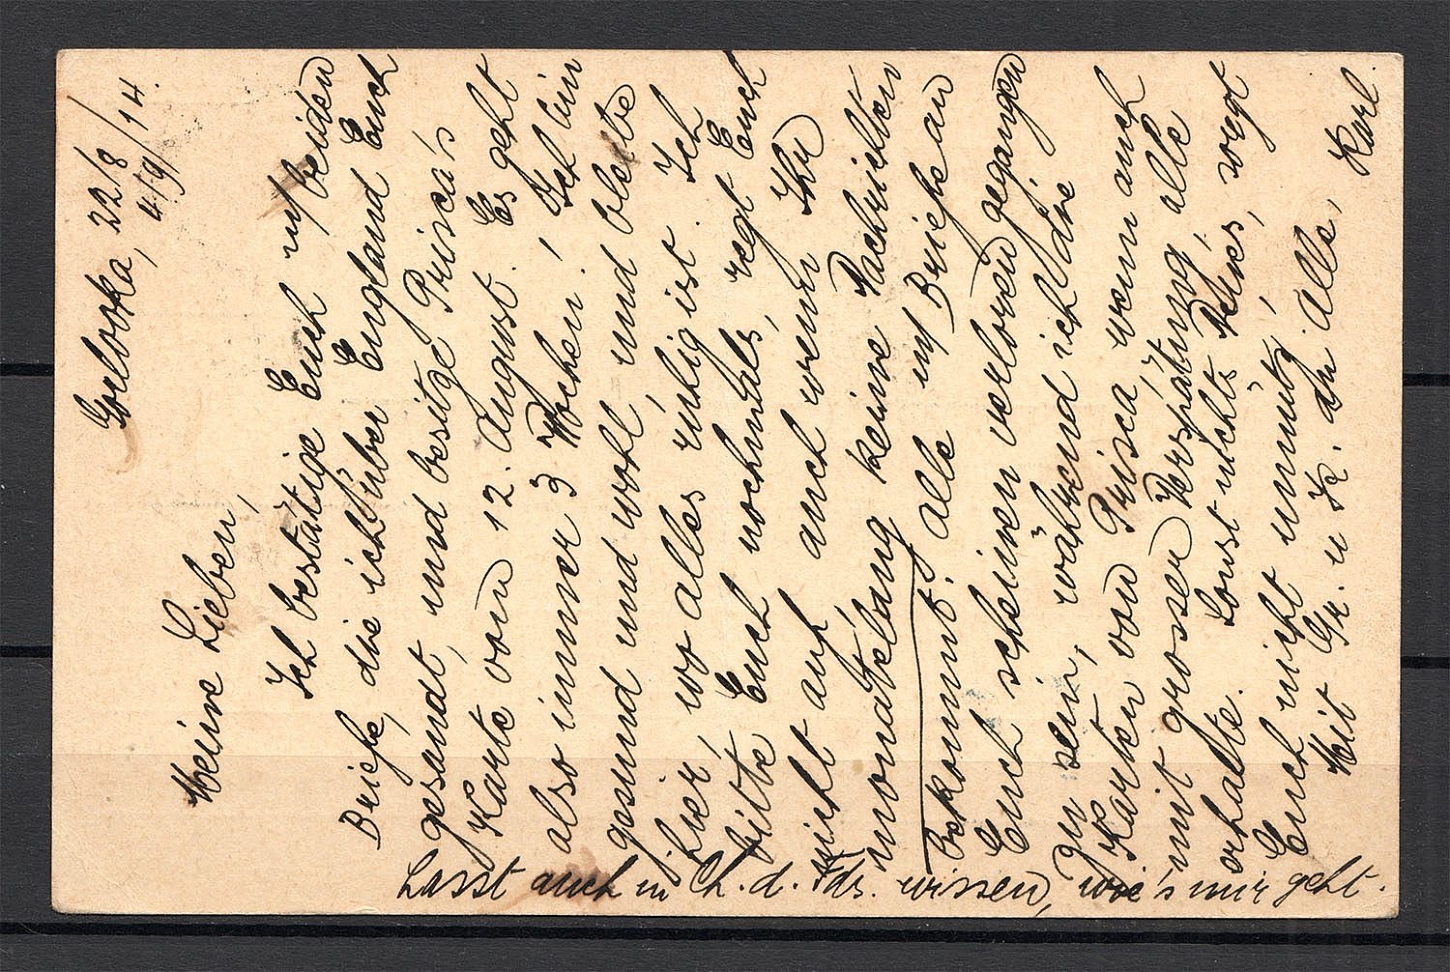 Gorlowka, 22/8 4/9/14.
Meine Lieben,
Ich bestätige Euch m/ beiden
Briefe die ich über England Euch
gesandt, und besitze Prisca's
Karte vom 12. August. Es geht
also immer 3 Wochen! Ich bin
gesund und wohl und bleibe
hier, wo alles ruhig ist. Ich
bitte Euch nochmals, regt Euch
nicht auf, auch wenn Ihr
monatelang keine Nachrichten
bekommt. alle m/ Briefe an
Euch scheinen verloren gegangen
zu sein, während ich die
Karten von Prisca wenn auch
mit grosser Verspätung, alle
erhalte. Sonst nichts Neues, sorgt
Euch nicht unnütz,
Mit Gr. u K. an alle,
Karl.
Lasst auch in Ch. d. Fds. wissen, wie's mir geht.